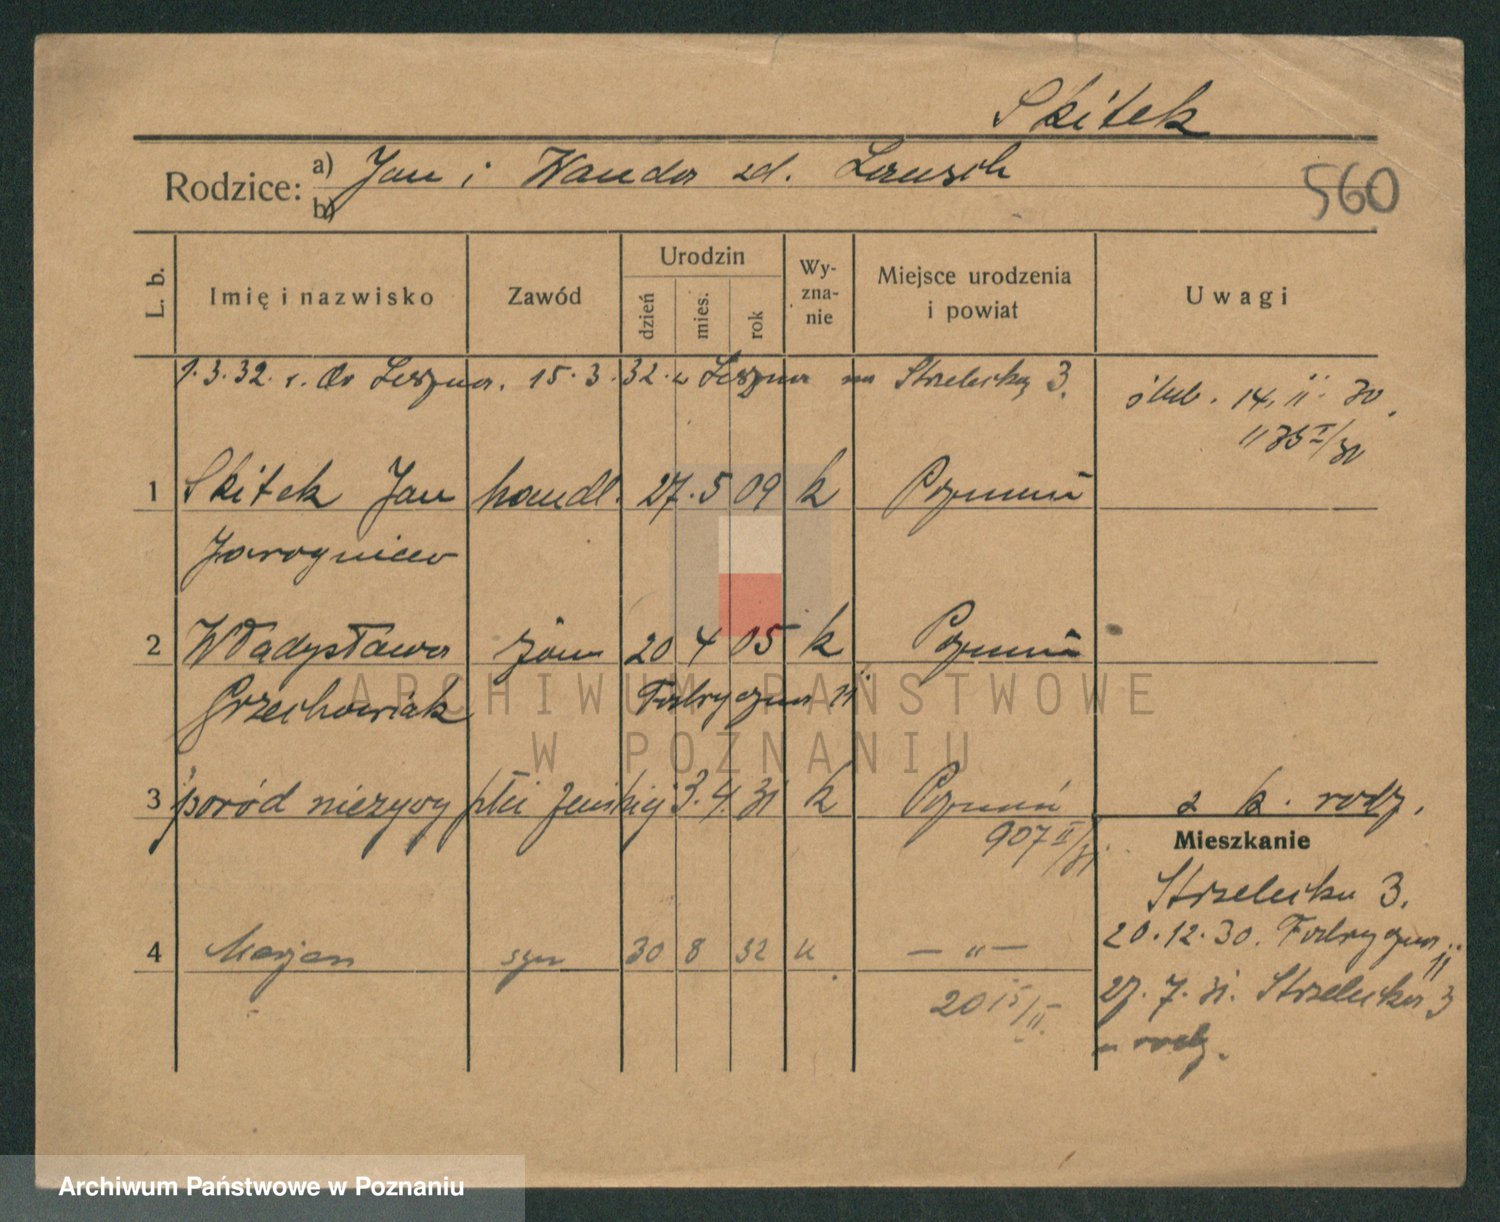 Skitek
Rodzice: a) Jan i Wanda zd. Lausch
b)
560
L. b. Imię i nazwisko Zawód Urodzin dzień mies. rok Wyznanie Miejsce urodzenia i powiat Uwagi
1.3.32. r. do Leszna. 15.3.32. z Leszna na Strzelecką 3.
ślub. 14. 11. 30.
1 Skitek Jan handl. 27. 5 09 k Poznań
2 Władysława żona 20 4 05 k Poznań
Grzechowiak Fabryczna 11
3 poród nieżywy płci żeńskiej 3. 4. 31 k Poznań z k. rodz.
907 II/31
Mieszkanie
Strzelecka 3.
20.12.30. Fabryczna 11
4 Marjan syn 30 8 32 k — „ —
27. 7. 31. Strzelecka 3
2015/II
u rodz.
ARCHIWUM PAŃSTWOWE
W POZNANIU
Archiwum Państwowe w Poznaniu